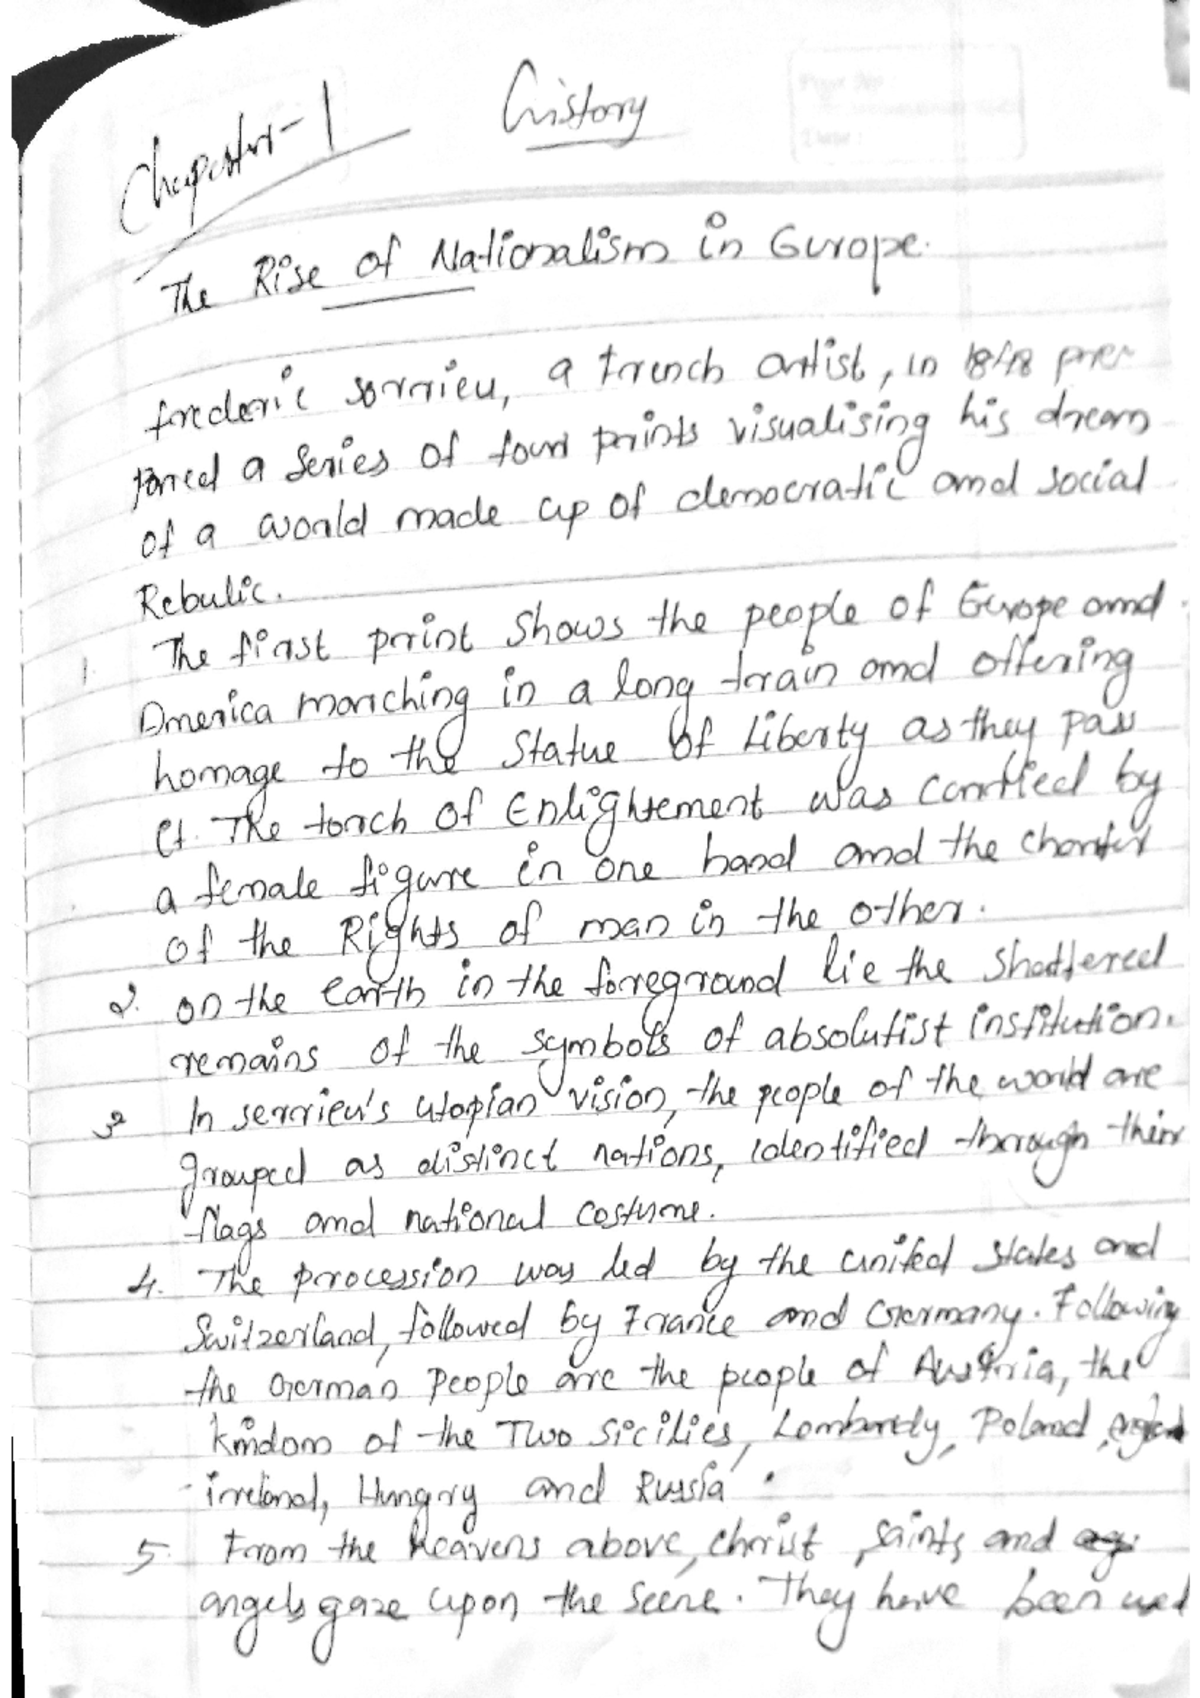 Chapester-1 History
The Rise of Nationalism in Europe.
frederic sorrieu, a french artist, in 1848 pre
pared a series of four prints visualising his dream
of a world made up of democratic and social
Rebulic.
1. The first print shows the people of Europe and
America marching in a long train and offering
homage to the Statue of Liberty as they pass
it. The torch of Enlightement was carried by
a female figure in one hand and the charter
of the Rights of man in the other.
2. on the earth in the foreground lie the shattered
remains of the symbols of absolutist institution.
3 In serrieu's utopian vision, the people of the world are
grouped as distinct nations, identified through their
flags and national costume.
4. The procession was led by the united states and
Switzerland, followed by France and Germany. Following
the German people are the people of Austria, the
kindom of the Two Sicilies, Lombardy, Poland, England
ireland, Hungry and Russia.
5. From the heavens above, christ, saints and
angels gaze upon the scene. They have been used